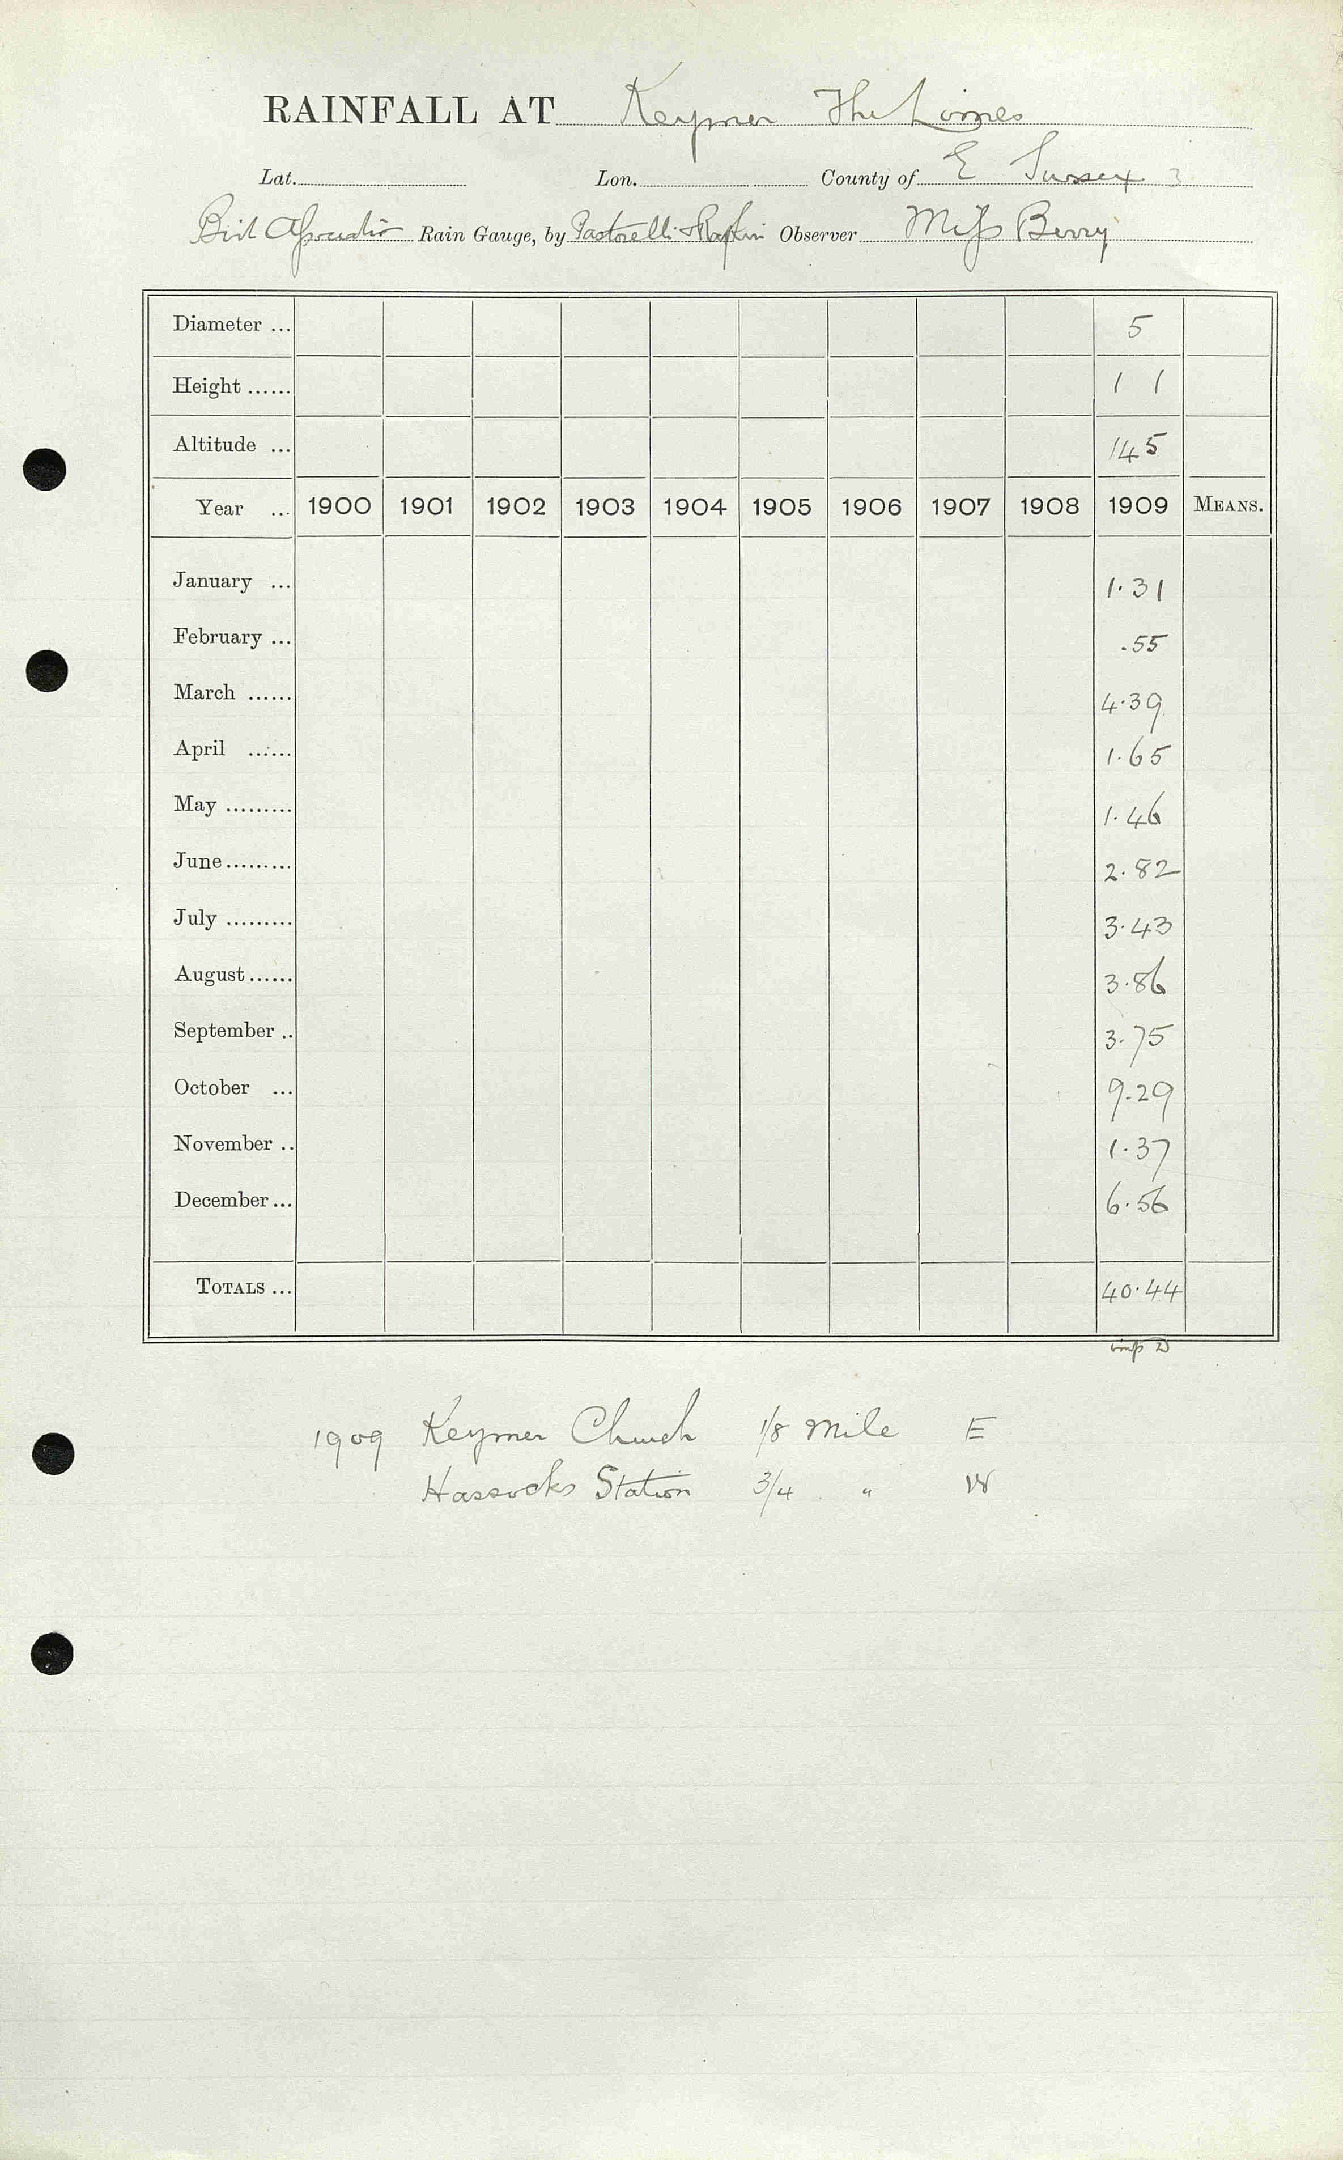 RAINFALL AT Keymer The Limes
Lat. Lon. County of E Sussex 3
Brit Association Rain Gauge, by Pastorelli & Rapkin Observer Miss Berry
Diameter ... 5
Height ...... 1 1
Altitude ... 145
Year ... 1900 1901 1902 1903 1904 1905 1906 1907 1908 1909 MEANS.
January ... 1.31
February ... .55
March ...... 4.39
April ...... 1.65
May ......... 1.46
June ......... 2.82
July ......... 3.43
August ...... 3.86
September .. 3.75
October ... 9.29
November .. 1.37
December ... 6.56
TOTALS ... 40.44
1909 Keymer Church 1/8 Mile E
Hassocks Station 3/4 " W